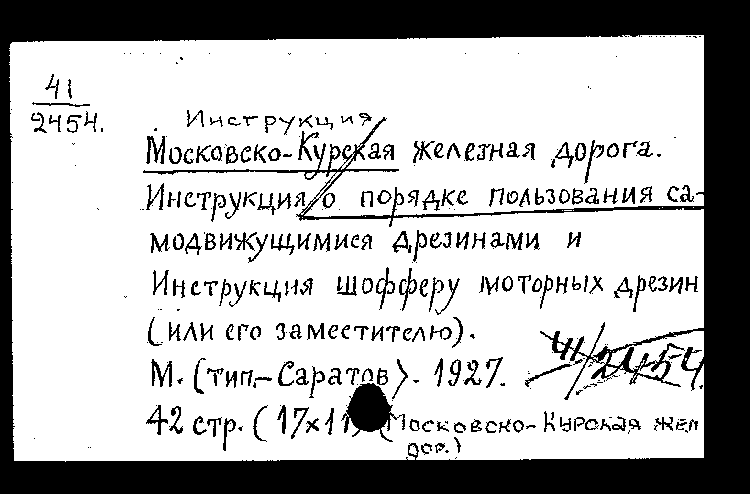 41
2454.
Инструкция
Московско-Курская железная дорога.
Инструкция о порядке пользования са-
модвижущимися дрезинами и
Инструкция шофферу моторных дрезин
(или его заместителю).
41/2454
М. (тип.-Саратов). 1927.
42 стр. (17х11) (Московско-Курская жел
дор.)